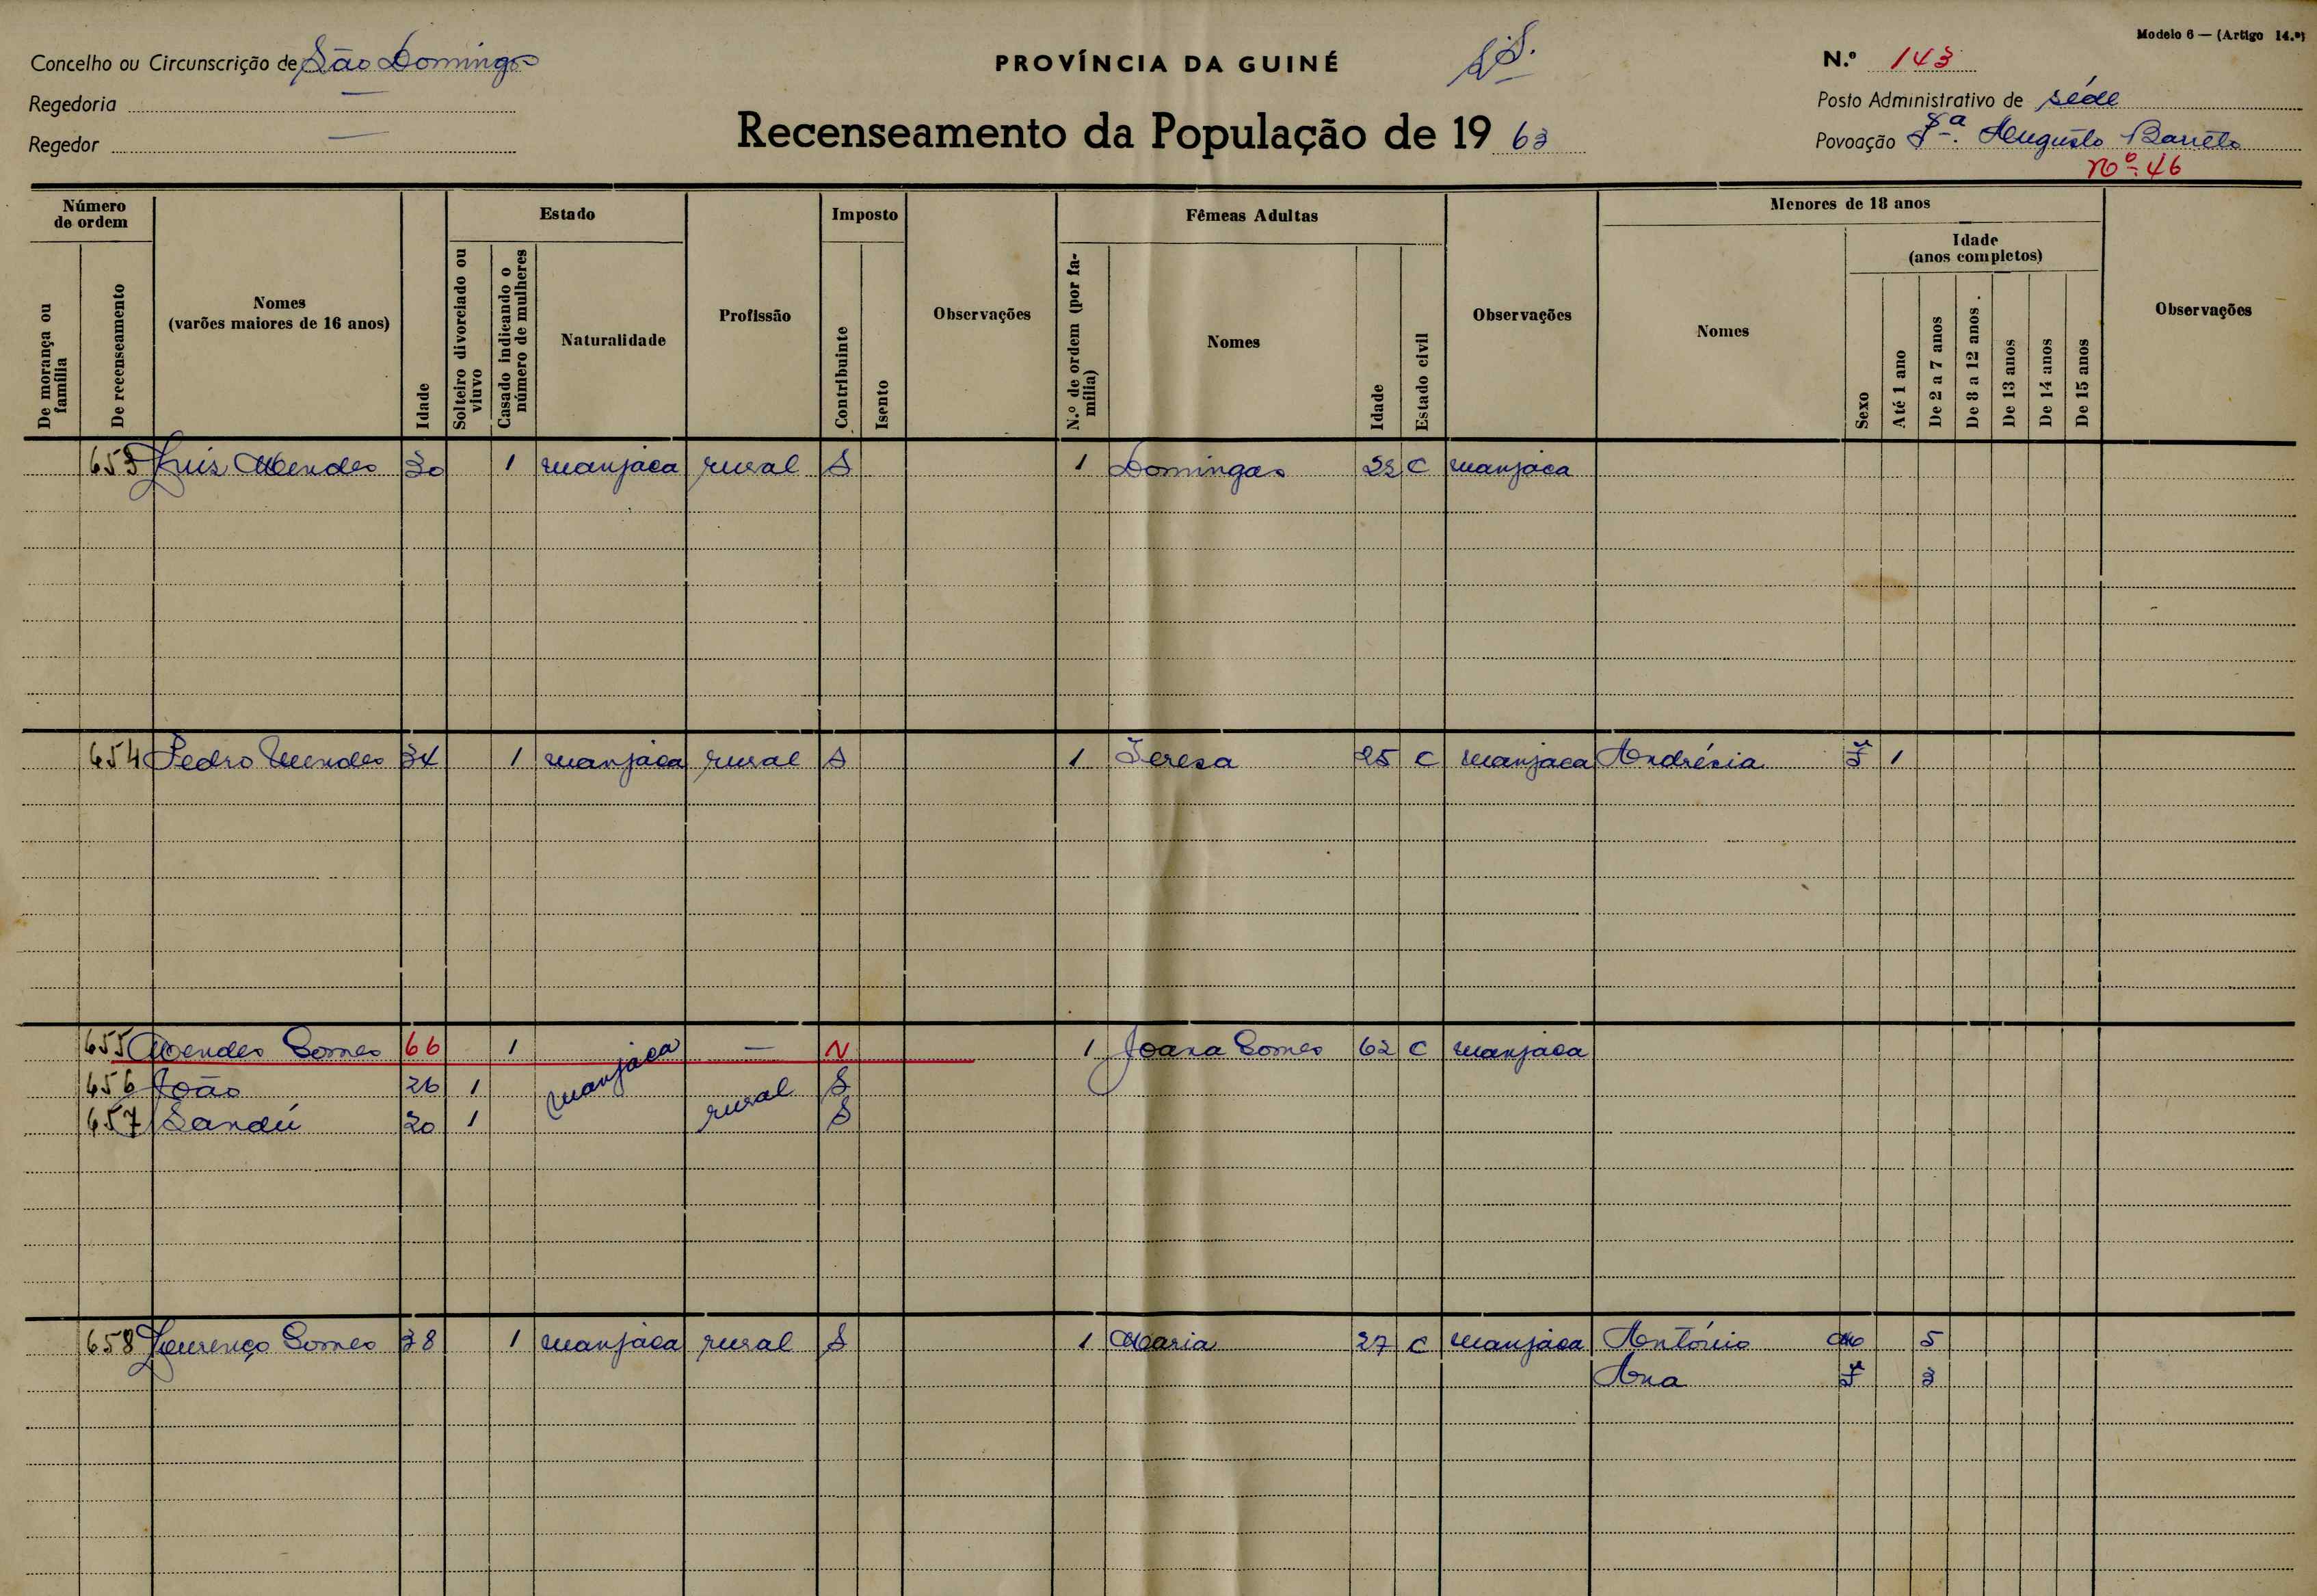 Modelo 6 — (Artigo 14.º)
Concelho ou Circunscrição de São Domingos
PROVÍNCIA DA GUINÉ
N.º 143
Regedoria —
Posto Administrativo de séde
Regedor —
Recenseamento da População de 1963
Povoação Fª. Augusto Barreto
nº. 46
Número de ordem
De morança ou família
De recenseamento
Nomes
(varões maiores de 16 anos)
Idade
Estado
Solteiro divorciado ou viuvo
Casado indicando o número de mulheres
Naturalidade
Profissão
Imposto
Contribuinte
Isento
Observações
Fêmeas Adultas
N.º de ordem (por família)
Nomes
Idade
Estado civil
Observações
Menores de 18 anos
Nomes
Sexo
Idade
(anos completos)
Até 1 ano
De 2 a 7 anos
De 8 a 12 anos.
De 13 anos
De 14 anos
De 15 anos
Observações
653 Luis Mendes 30 1 manjaca rural S 1 Domingas 22 C manjaca
654 Pedro Mendes 34 1 manjaca rural S 1 Teresa 25 C manjaca Andrésia F 1
655 Mendes Gomes 66 1 manjaca — N 1 Joana Gomes 62 C manjaca
656 João 26 1 rural S
657 Sandú 20 1 S
658 Lourenço Gomes 38 1 manjaca rural S 1 Maria 27 C manjaca António M 5
Ana F 3